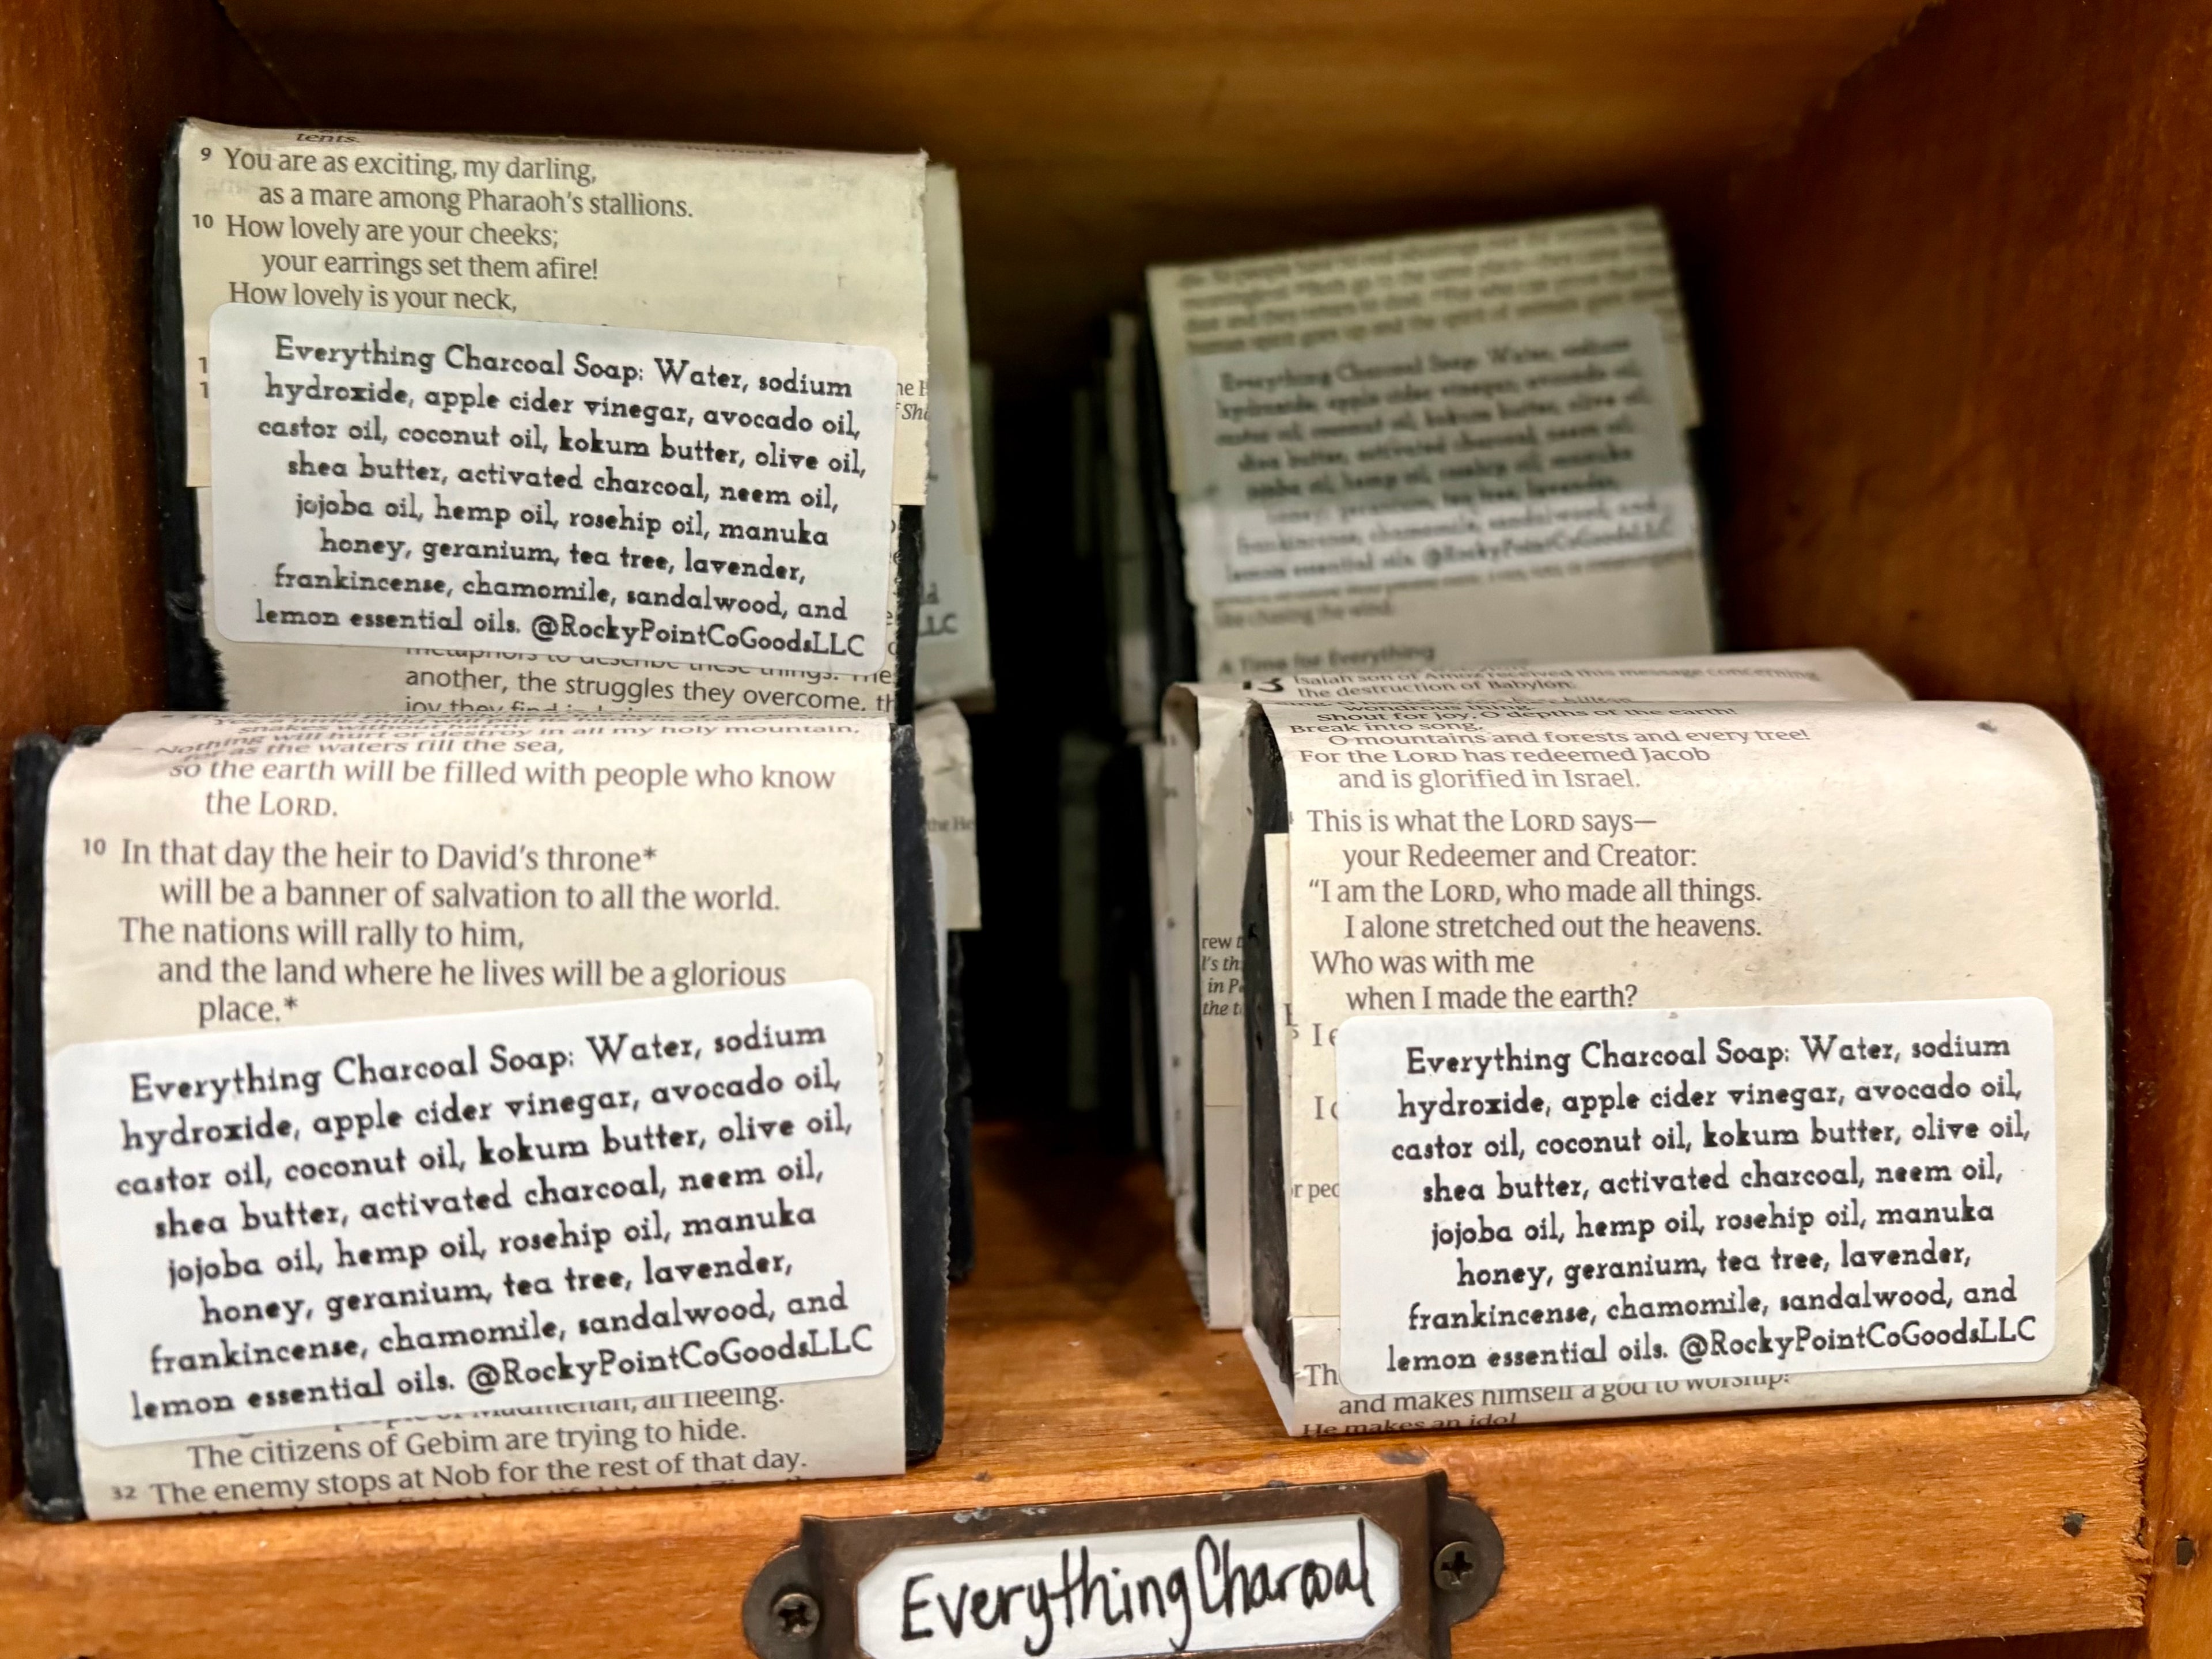 tents.
9 You are as exciting, my darling,
as a mare among Pharaoh's stallions.
10 How lovely are your cheeks;
your earrings set them afire!
How lovely is your neck,
Everything Charcoal Soap: Water, sodium
hydroxide, apple cider vinegar, avocado oil,
castor oil, coconut oil, kokum butter, olive oil,
shea butter, activated charcoal, neem oil,
jojoba oil, hemp oil, rosehip oil, manuka
honey, geranium, tea tree, lavender,
frankincense, chamomile, sandalwood, and
lemon essential oils. @RockyPointCoGoodsLLC
metaphors to describe these things.
another, the struggles they overcome,
joy they find
Everything Charcoal Soap: Water, sodium
hydroxide, apple cider vinegar, avocado oil,
castor oil, coconut oil, kokum butter, olive oil,
shea butter, activated charcoal, neem oil,
jojoba oil, hemp oil, rosehip oil, manuka
honey, geranium, tea tree, lavender,
frankincense, chamomile, sandalwood, and
lemon essential oils. @RockyPointCoGoodsLLC
like chasing the wind.
A Time for Everything
13 Isaiah son of Amoz received this message concerning
the destruction of Babylon:
snakes without harm.
Nothing will hurt or destroy in all my holy mountain,
for as the waters fill the sea,
so the earth will be filled with people who know
the LORD.
10 In that day the heir to David's throne*
will be a banner of salvation to all the world.
The nations will rally to him,
and the land where he lives will be a glorious
place.*
Everything Charcoal Soap: Water, sodium
hydroxide, apple cider vinegar, avocado oil,
castor oil, coconut oil, kokum butter, olive oil,
shea butter, activated charcoal, neem oil,
jojoba oil, hemp oil, rosehip oil, manuka
honey, geranium, tea tree, lavender,
frankincense, chamomile, sandalwood, and
lemon essential oils. @RockyPointCoGoodsLLC
people of Madmenah, all fleeing.
The citizens of Gebim are trying to hide.
32 The enemy stops at Nob for the rest of that day.
wondrous thing.
Shout for joy, O depths of the earth!
Break into song,
O mountains and forests and every tree!
For the LORD has redeemed Jacob
and is glorified in Israel.
This is what the LORD says—
your Redeemer and Creator:
"I am the LORD, who made all things.
I alone stretched out the heavens.
Who was with me
when I made the earth?
Everything Charcoal Soap: Water, sodium
hydroxide, apple cider vinegar, avocado oil,
castor oil, coconut oil, kokum butter, olive oil,
shea butter, activated charcoal, neem oil,
jojoba oil, hemp oil, rosehip oil, manuka
honey, geranium, tea tree, lavender,
frankincense, chamomile, sandalwood, and
lemon essential oils. @RockyPointCoGoodsLLC
and makes himself a god to worship!
He makes an idol
Everything Charcoal